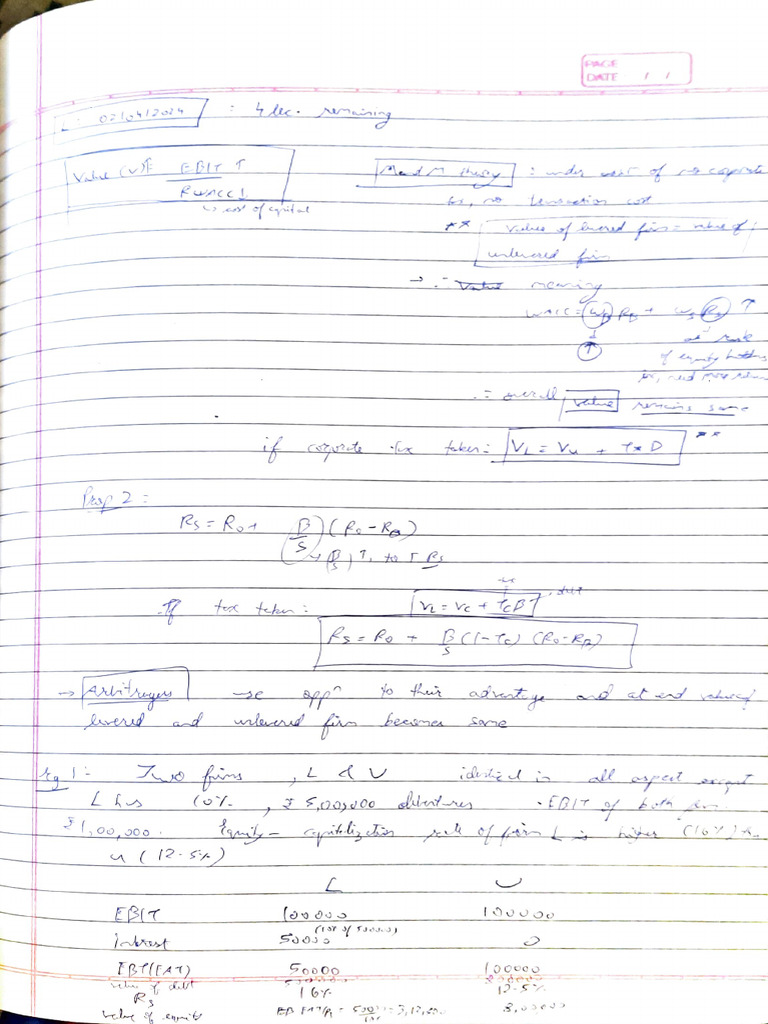 PAGE
DATE / /
L : 02/04/2024 : 4 lec. remaining
Value (V)↑ = EBIT ↑ / RWACC ↓
↳ cost of capital
M and M theory : under world of no corporate
tax, no transaction cost
** value of levered firm = value of
unlevered firm
→ ∴ Value meaning
WACC = WB RB + WS RS ↑
↑
risk
of equity holders
so, need more return
∴ overall value remains same
if corporate tax taken = VL = VU + T*D **
Prop 2 =
RS = R0 + B/S (R0 - RB)
→ B/S ↑, to ↑ RS
tax
debt
If tax taken : VL = VU + TCB
RS = R0 + B/S (1-TC) (R0-RB)
→ Arbitragers use oppn to their advantage and at end value of
levered and unlevered firm becomes same
Eg 1:- Two firms, L & U identical in all aspect except
L has 10%, ₹ 5,00,000 debentures. EBIT of both firm
₹1,00,000. Equity - capitalization rate of firm L is higher (16%) than
U (12.5%)
L U
EBIT 100000 100000
(10% of 500000)
Interest 50000 0
EBT(EAT) 50000 100000
value of debt 500000
RS 16% 12.5%
value of equity = 3,12,500 8,00000